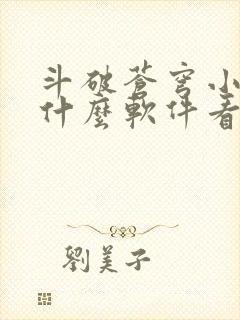 斗破蒼穹小
什麼軟件看
劉美子